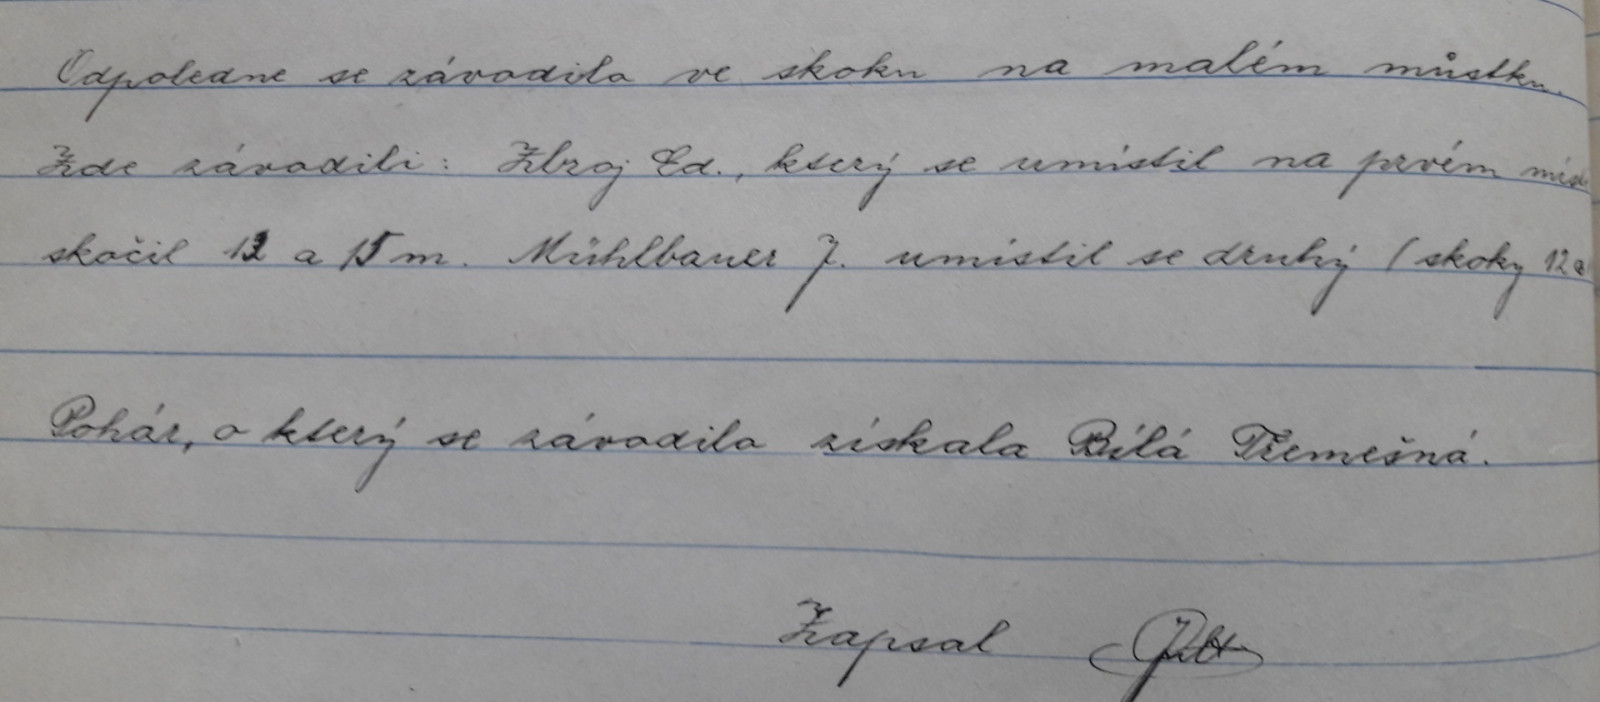 Odpoledne se závodilo ve skoku na malém můstku.
Zde závodili: Zbroj Ed., který se umístil na prvém
skočil 12 a 15 m. Mühlbauer J. umístil se druhý (skoky 12 a
Pohár, o který se závodilo získala Bílá Třemešná.
Zapsal